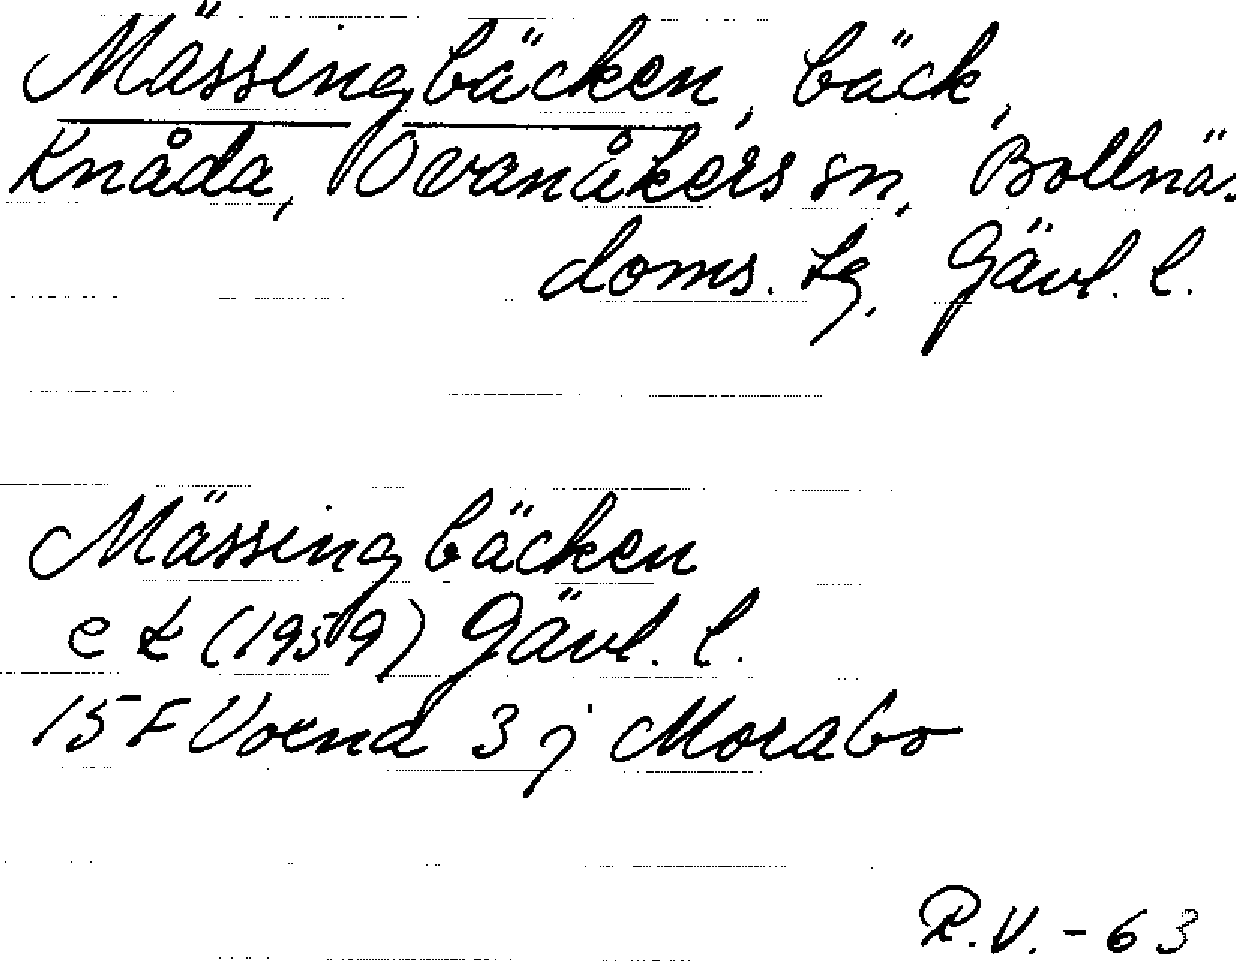 Mässingbäcken, bäck,
Knåda, Ovanåkers sn, Bollnäs
doms. tg, Gävl. l.
Mässingbäcken
e k (1959) Gävl. l.
15 F Voxna 3 j Morabo
R.V. - 63